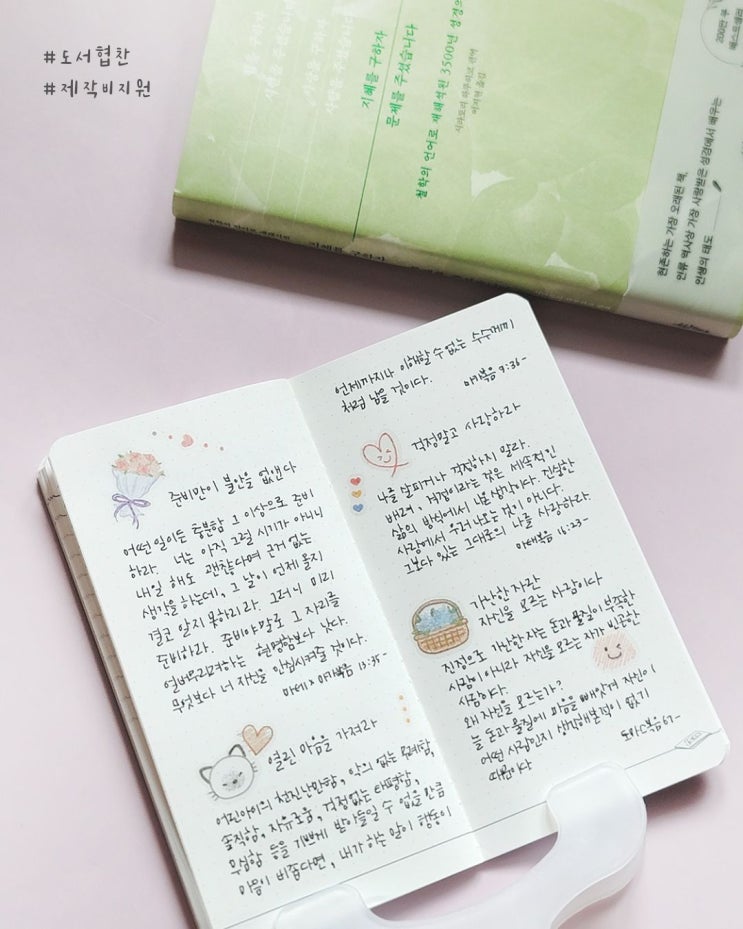 #도서협찬
#제작비지원
지혜를 구하자
문제를 주셨습니다
철학의 언어로 재해석한 3500년 성경의
시라토리 하루히코 편역
이지현 옮김
200만 부
베스트셀러
현존하는 가장 오래된 책,
인류 역사상 가장 사랑받은 성경에서 배우는
인생의 태도
지혜를 구하자
준비만이 불안을 없앤다
어떤 일이든 충분함 그 이상으로 준비
하라. 너는 아직 그럴 시기가 아니니
내일 해도 괜찮다며 근거 없는
생각을 하는데, 그 날이 언제 올지
결코 알지 못하리라. 그러니 미리
준비하라. 준비야말로 그 자리를
얼버무리려하는 현명함보다 낫다.
무엇보다 너 자신을 안심시켜줄 것이다.
마태 마가복음 13:35-
열린 마음을 가져라
어린아이의 천진난만함, 악의 없는
솔직함, 자유로움, 걱정없는 태평함,
무심함 등을 기쁘게 받아들일 수 없을 만큼
마음이 비좁다면, 내가 하는 일이 행동이
언제까지나 이해할 수 없는 수수께끼
처럼 남을 것이다.
마가복음 9:36-
걱정말고 사랑하라
나를 살피거나 걱정하지 말라.
배려, 걱정이라는 것은 세속적인
삶의 방식에서 나온 생각이다. 진실한
사랑에서 우러나오는 것이 아니다.
그보다 있는 그대로의 나를 사랑하라.
마태복음 16:23-
가난한 자란
자신을 모르는 사람이다
진정으로 가난한 자는 돈과 물질이 부족한
사람이 아니라 자신을 모르는 자가 빈곤한
사람이다.
왜 자신을 모르는가?
늘 돈과 물질에 마음을 빼앗겨 자신이
어떤 사람인지 생각해본적이 없기
때문이다
도마복음 67-